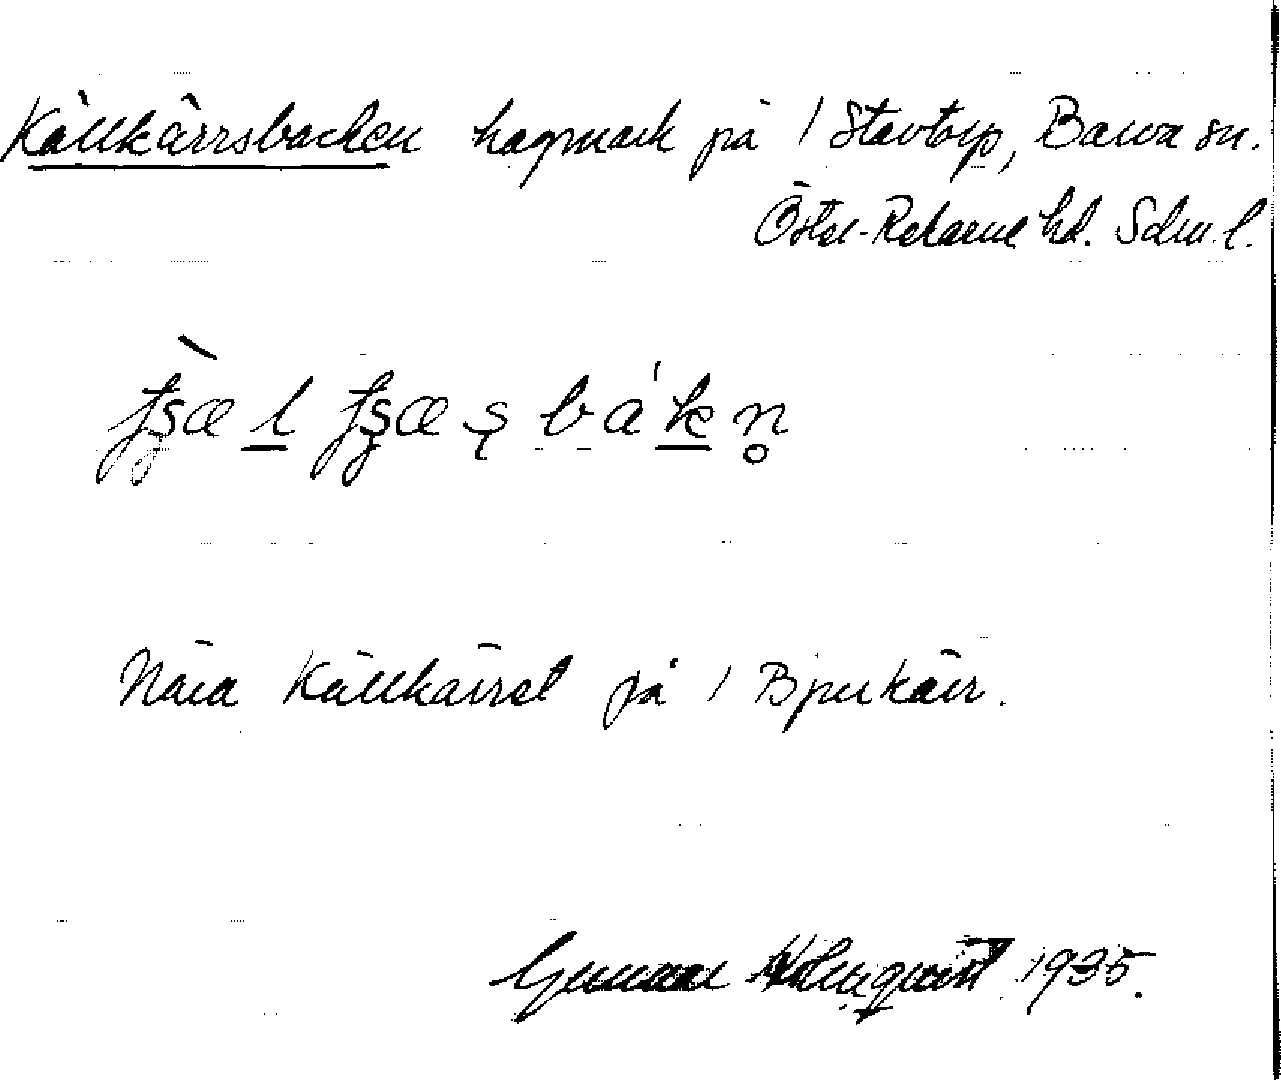 Källkärrsbacken hagmark på / Stavtorp, Barva sn.
Öster-Rekarne hd. Sdm. l.
Nära Källkärret på / Bjurkärr.
Gunnar Holmquist 1935.